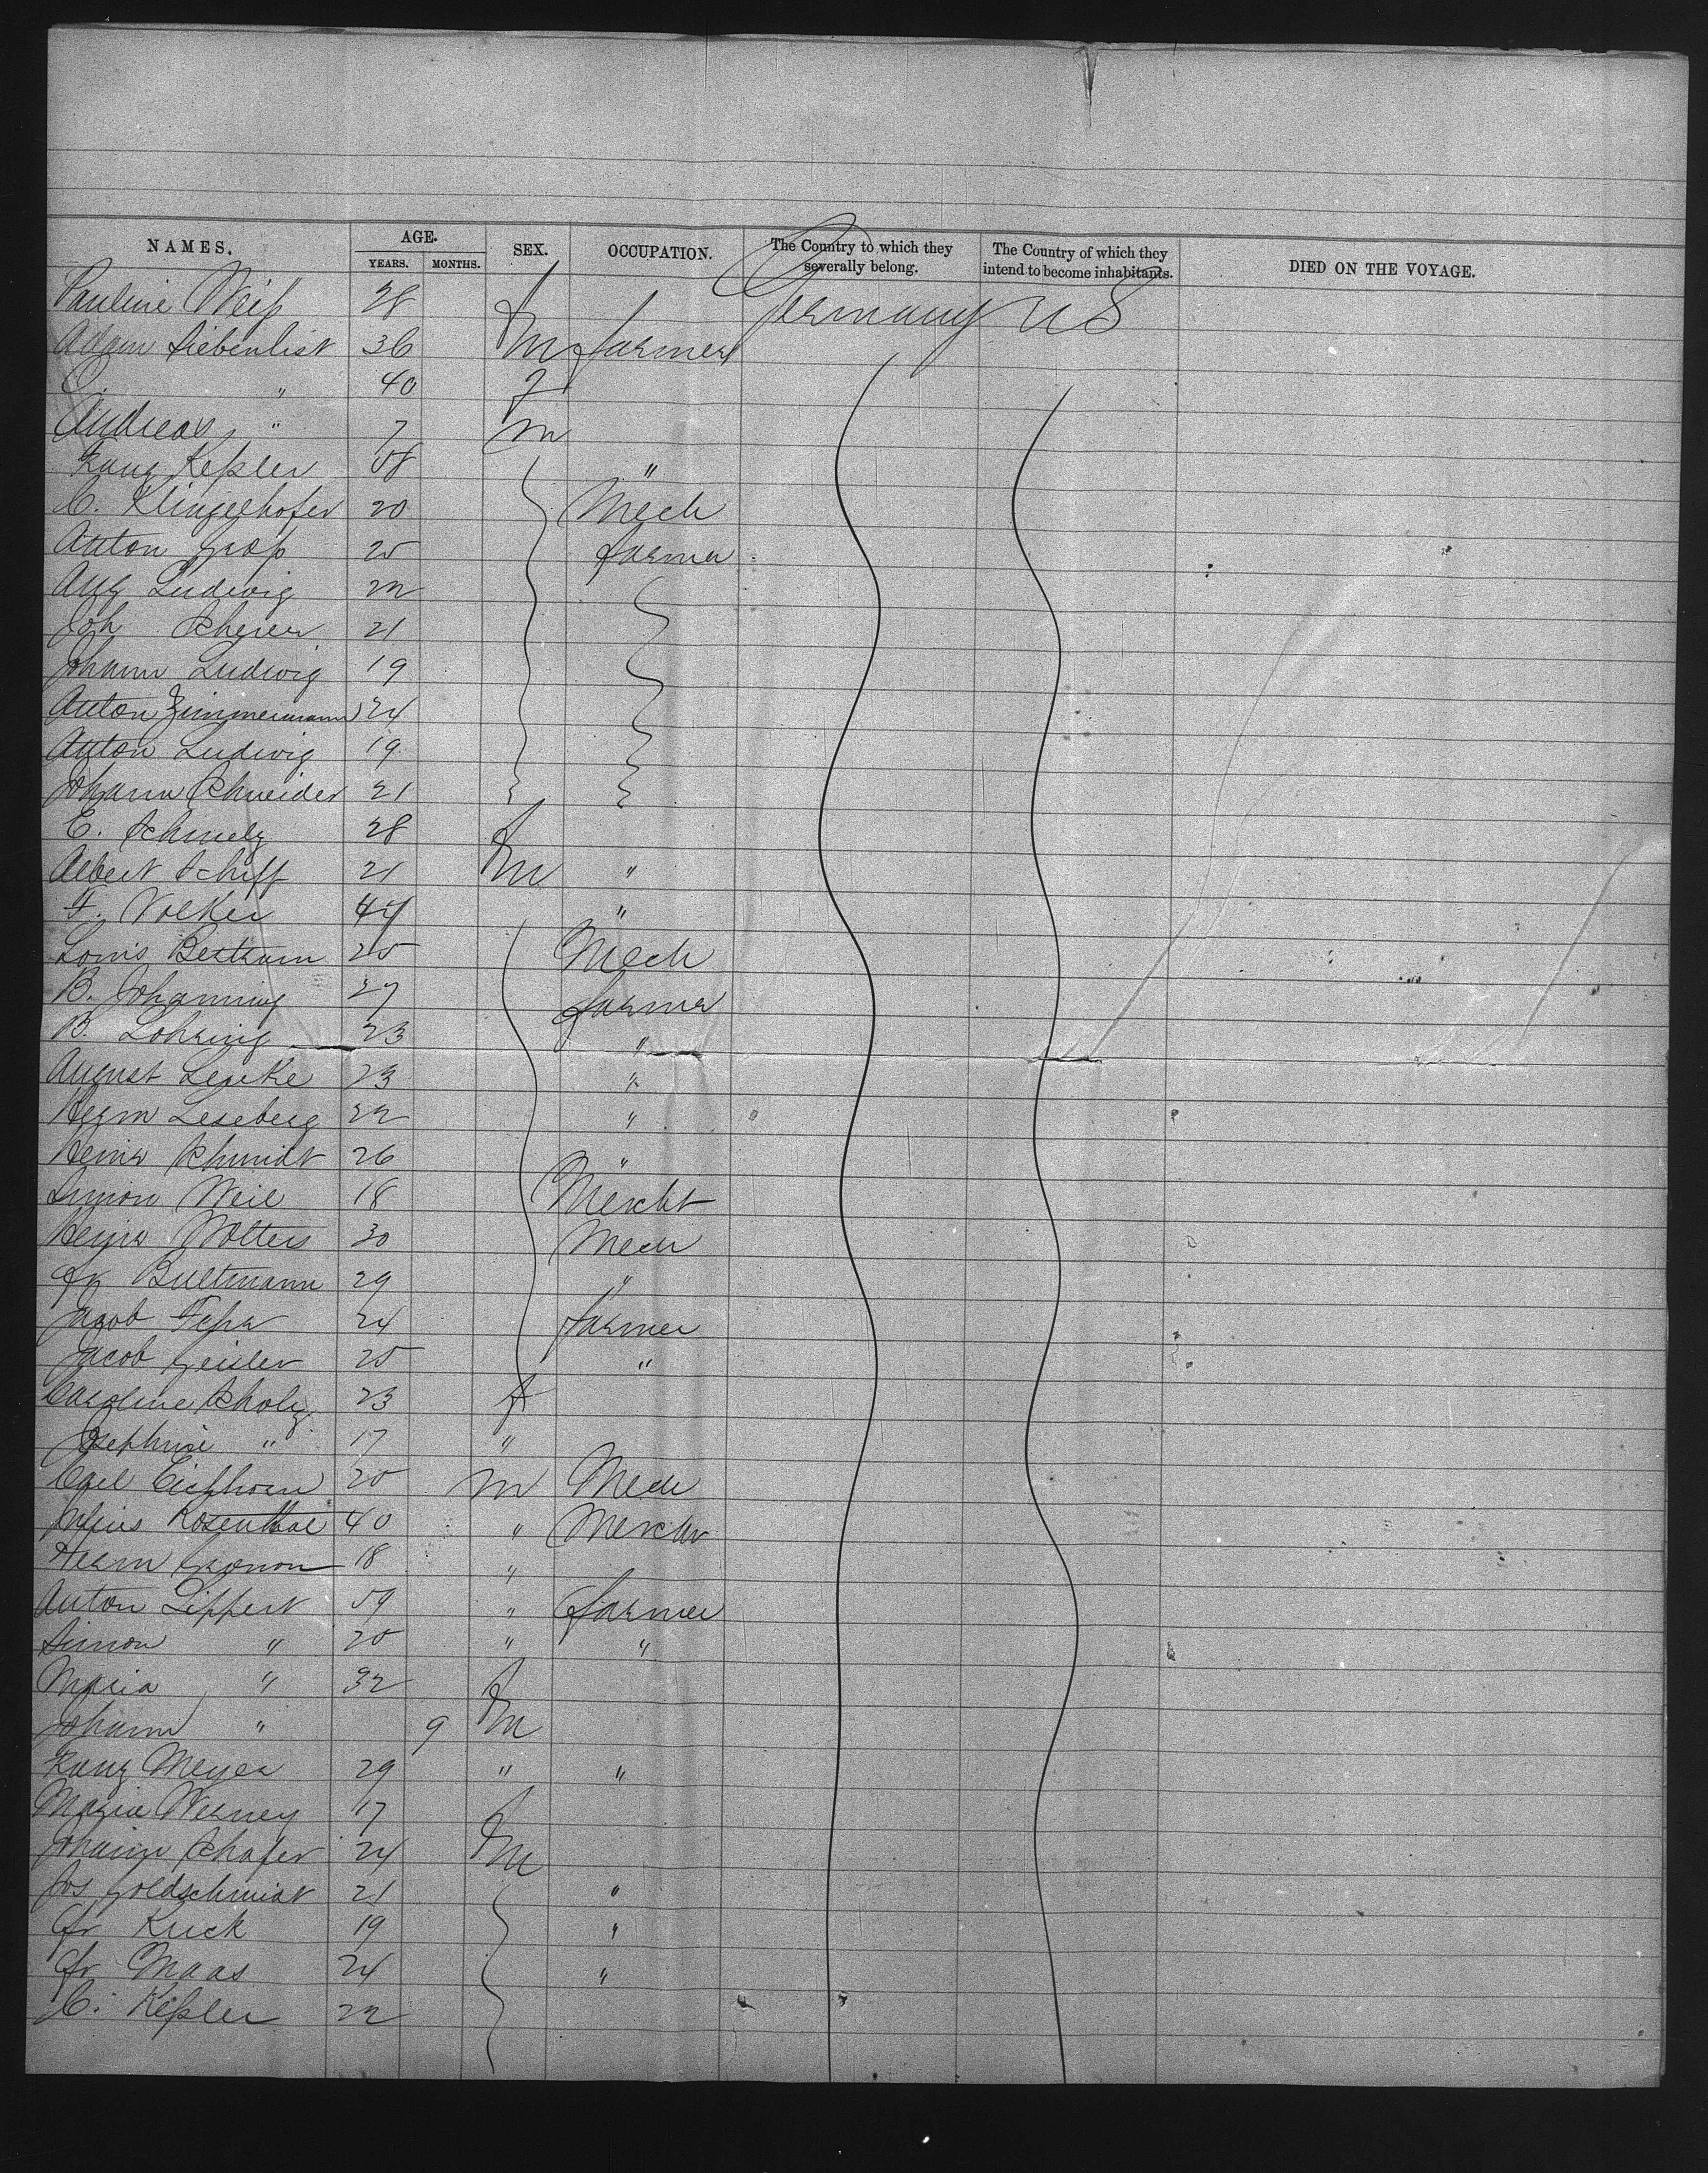 NAMES. AGE. SEX. OCCUPATION. The Country to which they severally belong. The Country of which they intend to become inhabitants. DIED ON THE VOYAGE.
YEARS. MONTHS.
Pauline Weiß 28 f Germany US
Adam Siebenlist 36 m farmer
C. " 40 f
Andreas " 7 m
Franz Keßler 58 "
C. Klingelhofer 20 Mech
Anton Groß 25 farmer
Aug Ludwig 22
Joh Scherer 21
Johann Ludwig 19
Anton Zimmermann 24
Anton Ludwig 19
Johann Schneider 21
E. Schmelz 28 f
Albert Schiff 21 m "
F. Volker 44 "
Louis Bertram 25 Mech
B. Johanning 27 farmer
B. Lohring 23 "
August Lenke 23 "
Herm Leseberg 22 "
Heinr Schmidt 26 "
Simon Weil 18 Mercht
Heinr Wolters 30 Mech
Fr Bultmann 29 "
Jacob 24 farmer
Jacob Geisler 25 "
Caroline Scholz 23 f
Josephine " 17 "
Carl Eichhorn 20 m Mech
Julius Rosenthal 40 " Mercht
Herm 18 "
Anton Lippert 59 " farmer
Simon " 25 " "
Maria " 32 f
Johann " 9 m
Franz Meyer 29 " "
Maria Werney 17 f
Johann Schafer 24 m
Jos Goldschmidt 21 "
Fr Kuck 19 "
Fr Maas 24 "
C. Keßler 22